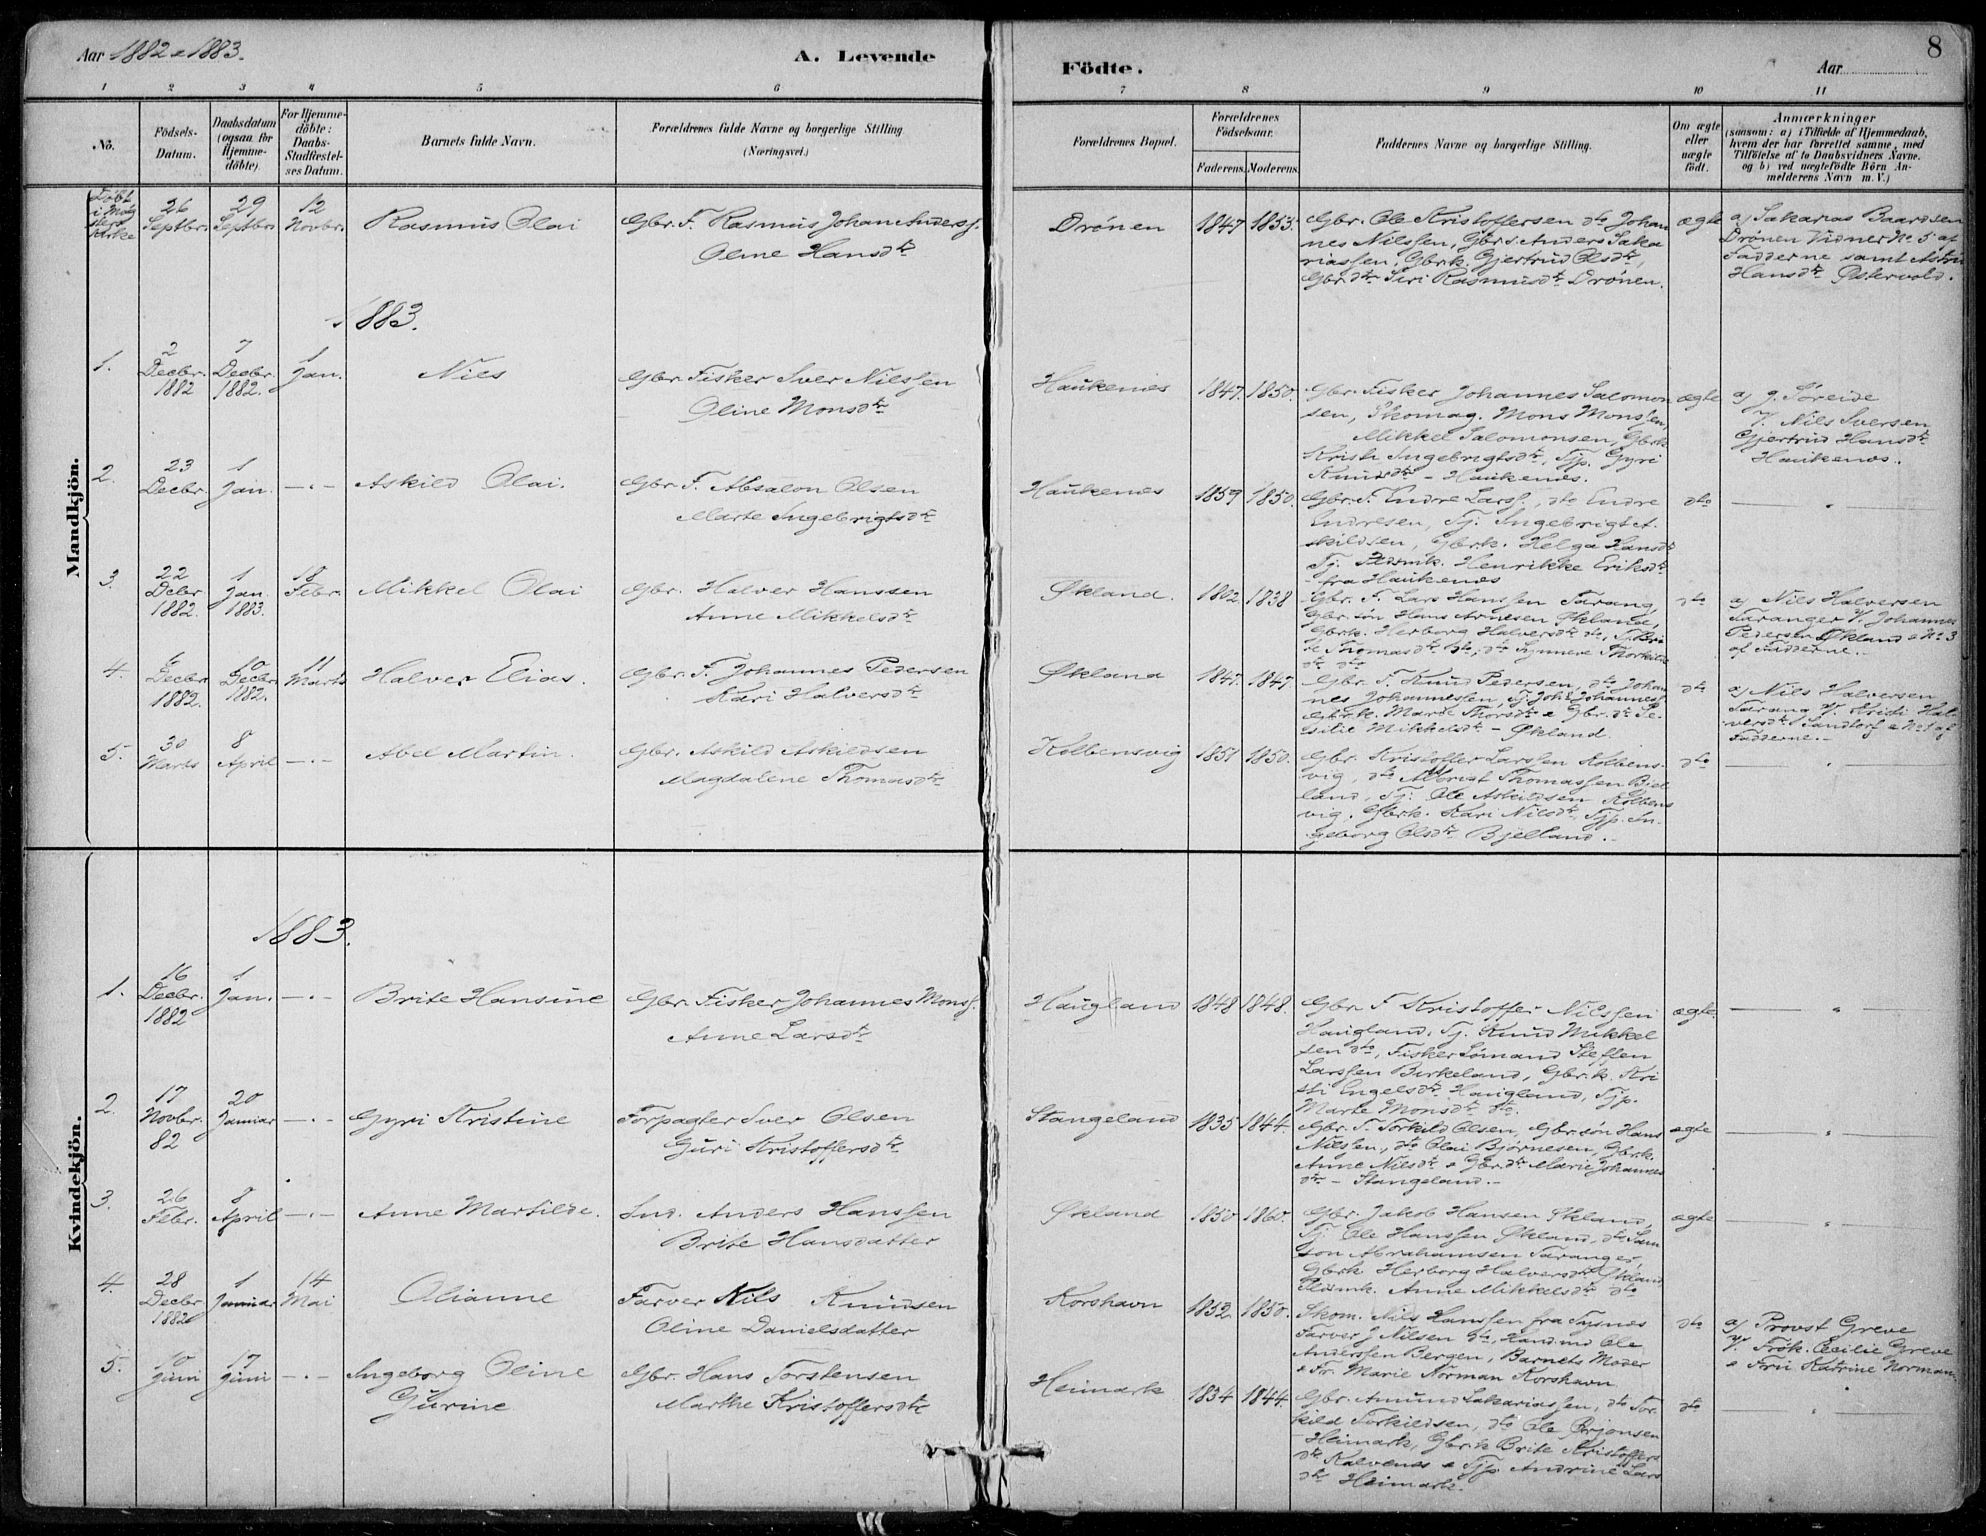 Aar 1882 & 1883.
A. Levende
Födte.
Aar
8
1 2 3 4 5 6 7 8 9 10 11
No.
Födsels-
Datum.
Daabsdatum
(ogsaa for
Hjemme-
döbte).
For Hjemme-
döbte:
Daabs-
Stadfæstel-
ses Datum.
Barnets fulde Navn.
Forældrenes fulde Navne og borgerlige Stilling
(Næringsvei.)
Forældrenes Bopæl.
Forældrenes
Födselsaar.
Faderens. Moderens.
Faddernes Navne og borgerlige Stilling.
Om ægte
eller
uægte
födt.
Anmærkninger
(saasom: a) i Tilfælde af Hjemmedaab,
hvem der har forrettet samme, med
Tilföielse af to Daabsvidners Navne.
og b) ved uægtefödte Börn An-
melderens Navn m. V.)
Mandkjön.
Döbt
i Møg
sters
Kirke
26
Septbr.
29
Septbr.
12
Novbr.
Rasmus Olai
Gbr. F. Rasmus Johan Anderss.
Oline Hansdtr
Drönen
1847 1853.
Gbr. Ole Kristoffersen dto Johan
nes Nilssen, Gbrs. Anders Saka
riassen, Gbrk. Gjertrud Olsdtr,
Gbr.dtr Siri Rasmusdtr Drönen.
ægte
a) Sakarias Baardsen
Drönen Vidner No. 5 af
Fadderne samt Astri
Hansdtr Østervold.
1883.
1.
2
Decbr.
1882
7
Decbr.
1882.
1
Jan.
Nils
Gbr. Fisker Iver Nilssen
Oline Monsdtr
Haukenes
1847. 1850.
Gbr. Fisker Johannes Salomon
sen, Skomag. Mons Monssen,
Mikkel Salomonsen, Gbrk
Kristi Ingebrigtsdtr, Tjp. Gyri
Knudsdtr - Haukenes.
ægte
a) J. Søreide
V. Nils Iversen
Gjertrud Hansdtr
Haukenes.
2.
23
Decbr.
1
Jan.
-.-
Askild Olai.
Gbr. F. Absalon Olsen
Marte Ingebrigtsdtr
Haukenes
1859 1850.
Gbr. F. Endre Larss., dto Endre
Endresen, Tj. Ingebrigt A.
skildsen, Gbrk. Helga Hansdtr
Tj. Pedrnk. Henrikke Eriksdtr
- fra Haukenes
dto
3.
22
Decbr
1882.
1
Jan.
1883.
18
Febr.
Mikkel Olai
Gbr. Halver Hanssen
Anne Mikkelsdtr
Økland.
1802. 1838
Gbr. F. Lars Hanssen Tarang,
Gbr.søn Hans Arnesen Økland,
Gbrk. Herborg Halversdtr dto,
Thomasdtr dto, dto Synneve Thorkilds
dtr dto
dto
a) Nils Halversen
Taranger V. Johannes
Pedersen Økland & No. 3
af Fadderne.-
4.
6
Decbr
1882.
10
Decbr
1882.
11
Marts
Halver Elias.
Gbr. F. Johannes Pedersen
Kari Halversdtr
Økland
1847. 1847.
Gbr. F. Knud Pedersen, dto Johan
nes Johannessen, Tj. Johs Johanness.
Gbrk. Marte Thorsdtr & Gbr.dtr Se-
silie Mikkelsdtr - Økland.
dto
a) Nils Halversen
Tarang V. Kristi Hal-
versdtr Sandtorf & No. 1 af
Fadderne.-
5.
30
Marts
8
April
-.-
Abel Martin.
Gbr. Askild Askildsen
Magdalene Thomasdtr
Kolbensvig
1851 1850.
Gbr. Kristoffer Larssen Kolbens-
vig, dto Albrigt Thomassen Bjel
land, Tj: Ole Askildsen Kolbens
vig, Gbrk. Kari Nilsdtr, Tjp. In-
geborg Olsdtr Bjelland.-
dto
Kvindekjön.
1883.
1.
16
Decbr.
1882
1
Jan.
-.-
Brite Hansine
Gbr. Fisker Johannes Monss.
Anne Larsdtr
Haugland
1848 1848.
Gbr. F Kristoffer Nilssen
Haugland, Tj. Knud Mikkel
sen dto, Fisker Sømand Steffen
Larssen Birkeland, Gbrk. Kri
sti Engelsdtr Haugland, Tjp.
Marte Monsdtr dto.
ægte.
2.
17
Novbr.
82
20
Januar
-.-
Gyri Kristine
Forpagter Iver Olsen
Guri Kristoffersdtr
Stangeland
1835 1844.
Gbr. F. Torkild Olsen, Gbrsøn Hans
Nilssen, dto Olai Bjørnesen, Gbrk.
Anne Nilsdtr & Gbr.dtr Marie Johannes
dtr - Stangeland.-
ægte
3.
26
Febr.
8
April
-.-
Anne Martilde.
Ind. Anders Hanssen
Brite Hansdatter
Økland
1850 1860.
Gbr. Jakob Hansen Økland,
Tj. Ole Hanssen Økland, dto Sam
son Abrahamsen Taranger,
Gbrk Herborg Halversdtr Økland
Pedrnk. Anne Mikkelsdtr dto
ægte
4.
28
Decbr
1882
1
Januar
14
Mai
Olianne
Farver Nils Knudsen
Oline Danielsdatter
Korshavn
1852. 1850.
Skom. Nils Hanssen fra Tysnes
Farver J Nilsen dto, Handmd Ole
Anderssen Bergen, Barnets Moder
& Fr. Marie Norman Korshavn
dto
a) Provst Greve
V. Frök. Cecilie Greve
& Fru Katrine Norman.
5.
10
Juni
17
Juni
-.-
Ingeborg Oline
Gurine
Gbr. Hans Torstensen
Marthe Kristoffersdtr
Heimark
1834 1844.
Gbr. Amund Sakariassen, dto Tor-
kild Torkildsen, dto Ole Ørjansen
Heimark, Gbrk Brite Kristoffers
dtr Kalvenes & Tjp Andrine Lars
dtr Heimark.
dto